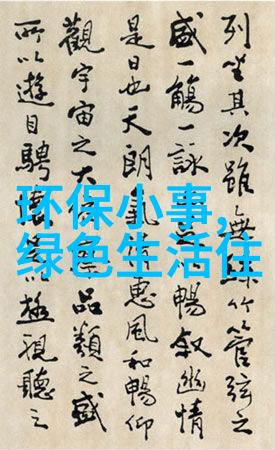 环保小事,
绿色生活住
列坐其次雖無竹管弦之
盛一觴一詠暢敘幽情
是日也天朗氣惠風和暢仰
觀宇宙之大品類之盛
所以遊目騁極視聽之